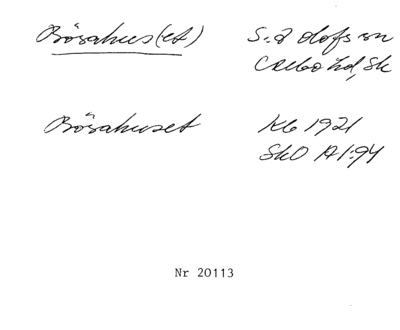 Bösahus(et) S. Rolofs sn
Albo hd, Sk
Bösahuset Kb 1921
SkO A1:94
Nr 20113